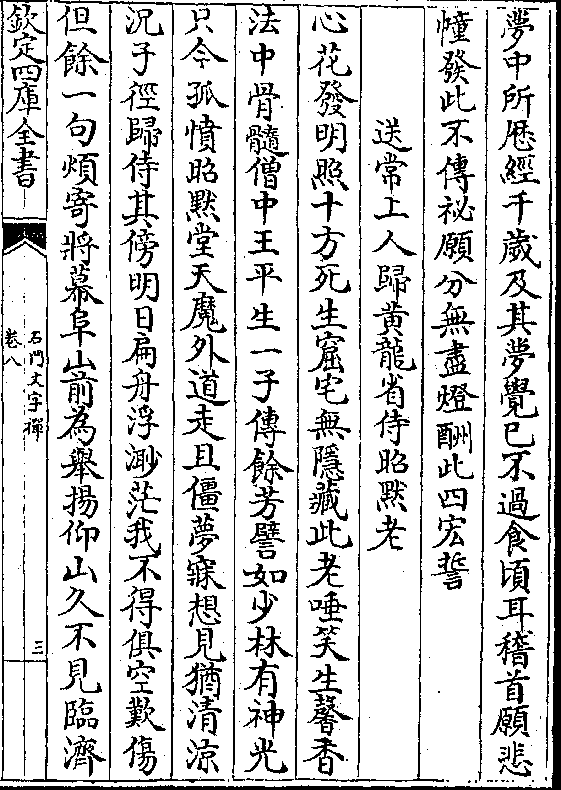 夢中所歴經千歳及其夢覺已不過食頃耳稽首願悲
幢發此不傳祕願分無盡燈酬此四宏誓
送常上人歸黄龍省侍昭黙老
心花發明照十方死生窟宅無隱藏此老唾笑生馨香
法中骨髓僧中王平生一子傳餘芳譬如少林有神光
只今孤憤昭黙堂天魔外道走且僵夢寐想見猶清涼
況子徑歸侍其傍明日扁舟浮渺茫我不得俱空歎傷
但餘一句煩寄將幕阜山前為舉揚仰山久不見臨濟
欽定四庫全書
石門文字禪
卷八
三